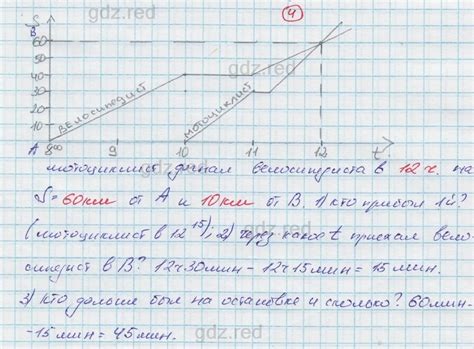 gdz.red
4
S
B
60
50
40
30
20
10
велосипедист
мотоциклист
gdz.red
A 8⁰⁰ 9 10 11 12 t
мотоциклист догнал велосипедиста в 12 ч. на
S = 60км от А и 10км от В. 1) кто прибыл 1й?
(мотоциклист в 12¹⁵); 2) через какое t приехал вело-
сипедист в В? 12ч30мин - 12ч15мин = 15мин.
3) Кто дольше был на остановке и сколько? 60мин-
-15мин = 45мин.
gdz.red